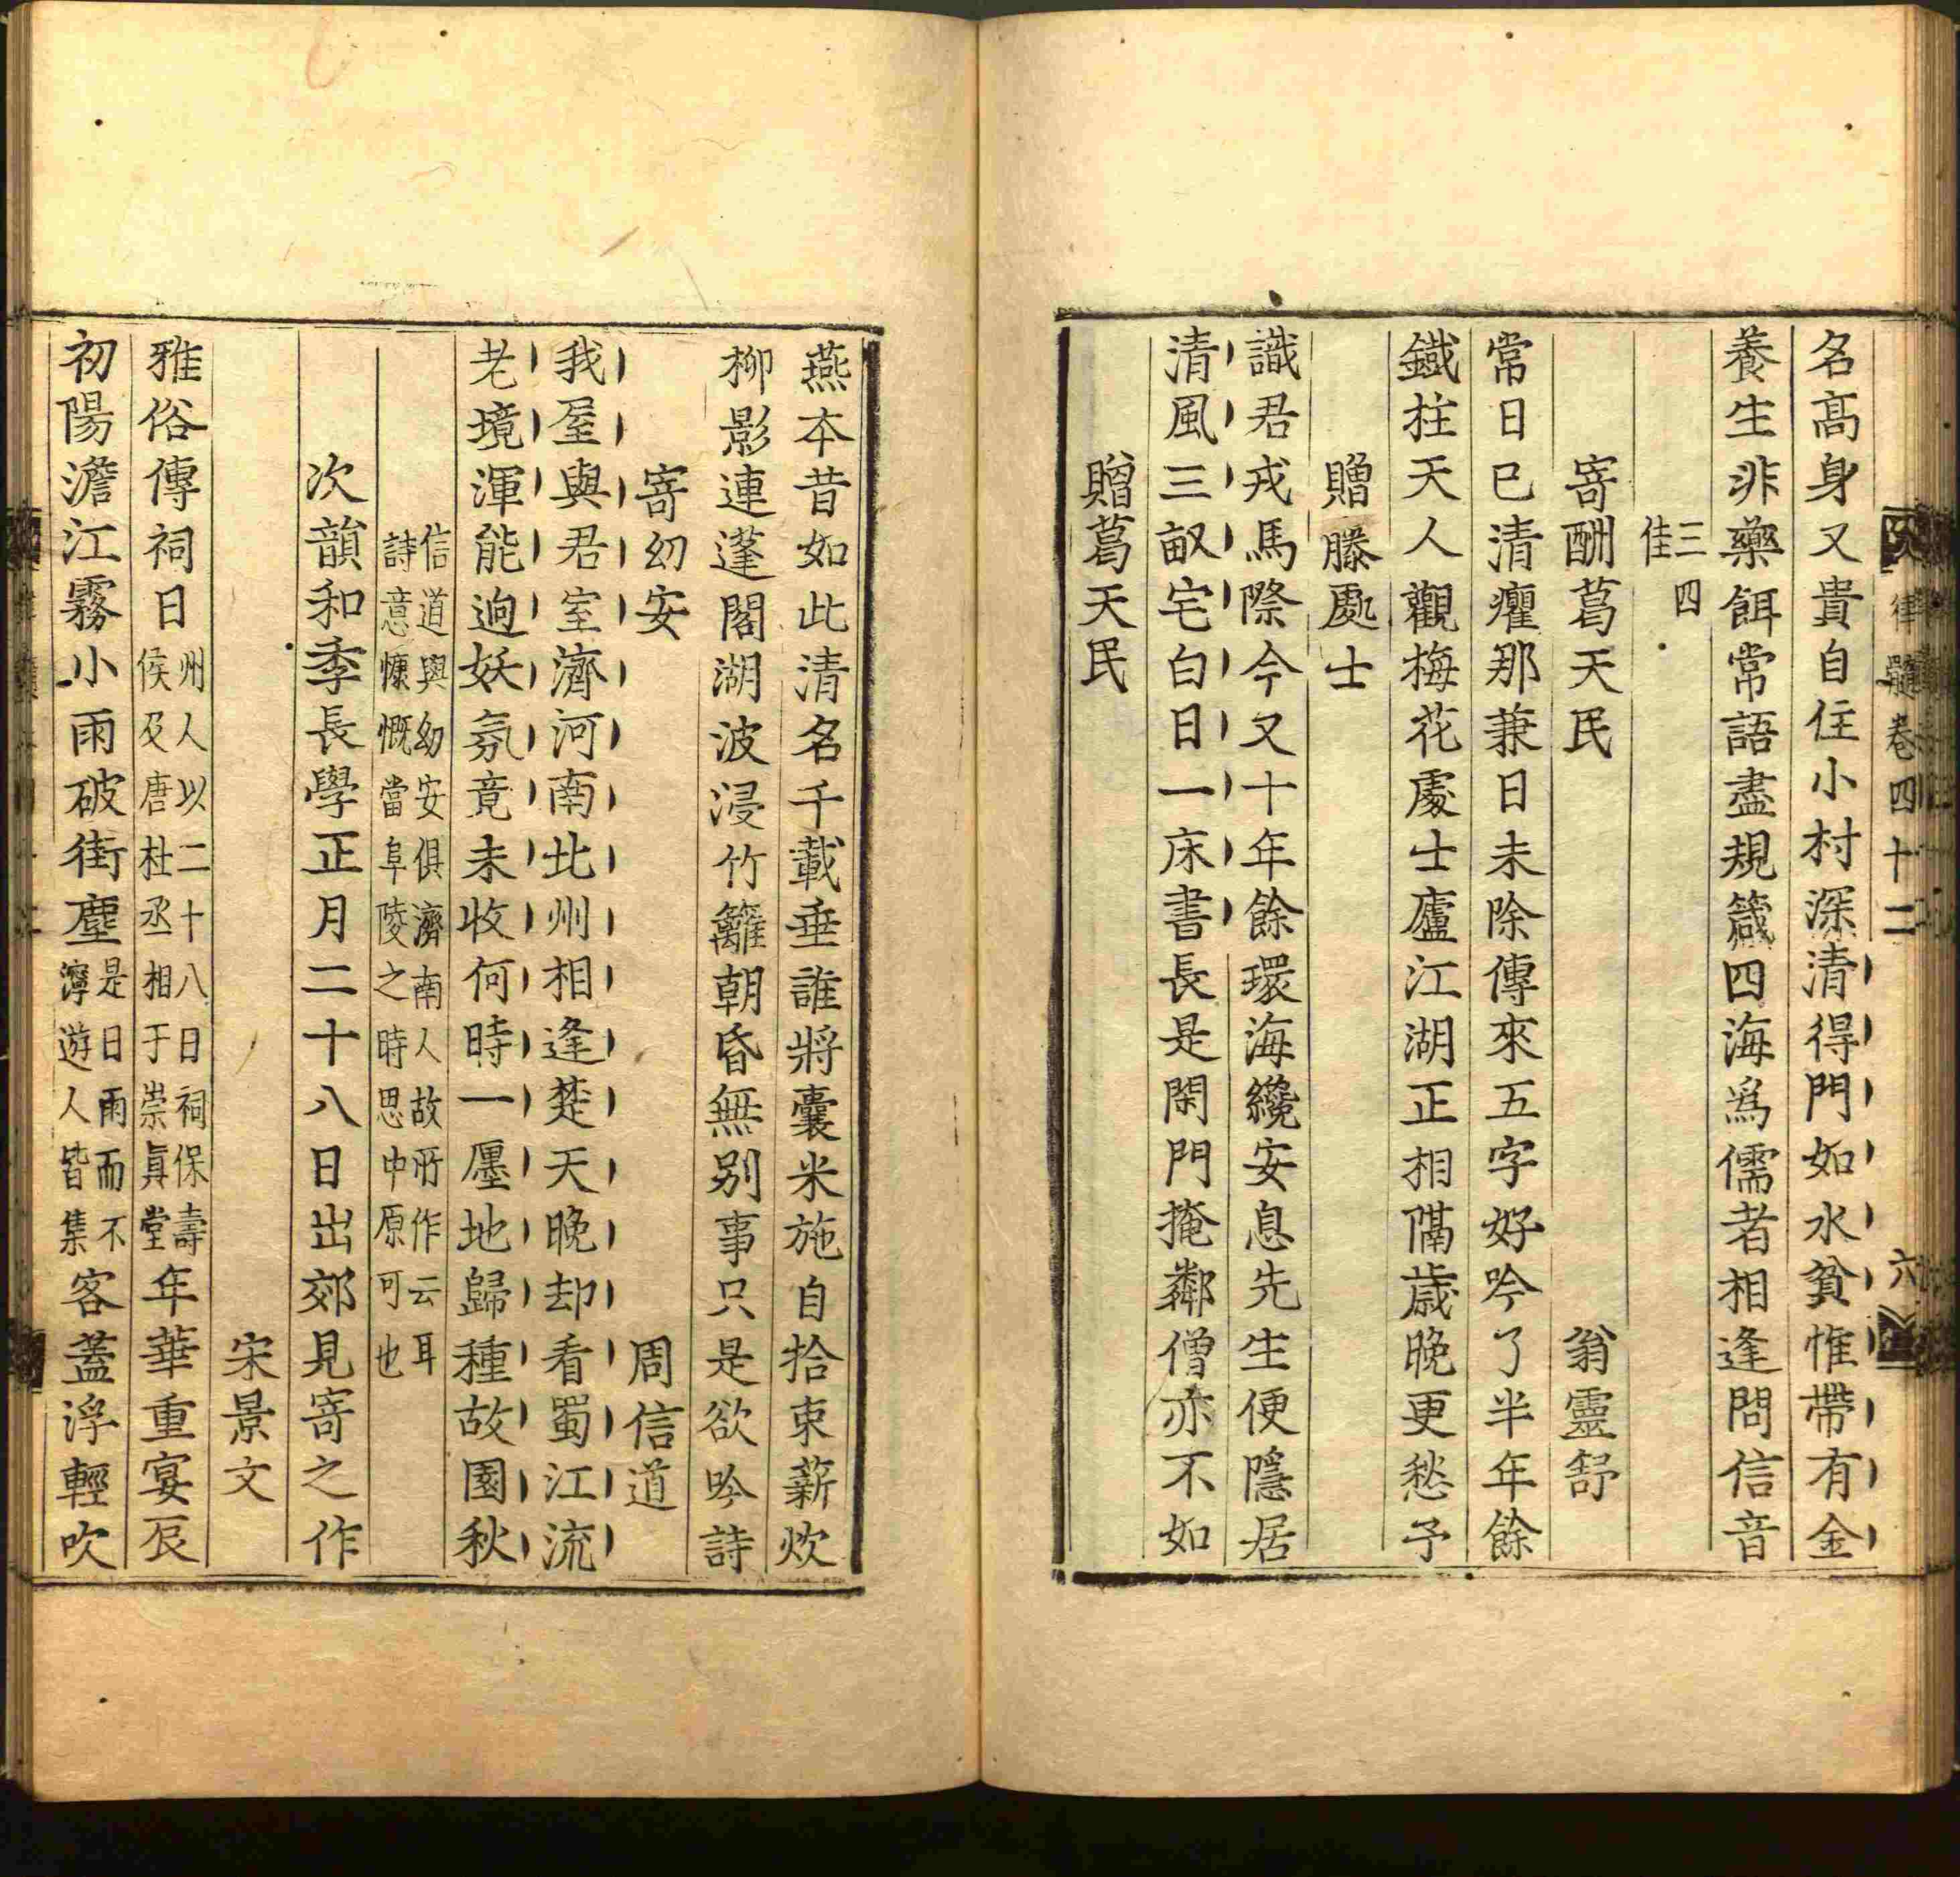 律髓卷四十二
六
名高身又貴自住小村深清得門如水貧惟帶有金
養生非藥餌常語盡規箴四海爲儒者相逢問信音
三四
佳
寄酬葛天民
翁靈舒
常日已清癯那兼日未除傳來五字好吟了半年餘
鐵柱天人觀梅花處士廬江湖正相隔歲晚更愁予
贈滕處士
識君戎馬際今又十年餘環海纔安息先生便隱居
清風三畝宅白日一床書長是閑門掩鄰僧亦不如
贈葛天民
燕本昔如此清名千載垂誰將囊米施自拾束薪炊
柳影連蓬閣湖波浸竹籬朝昏無别事只是欲吟詩
寄幼安
周信道
我屋與君室濟河南北州相逢楚天晚却看蜀江流
老境渾能逈妖氛竟未收何時一廛地歸種故園秋
信道與幼安俱濟南人故所作云耳
詩意慷慨當阜陵之時思中原可也
次韻和季長學正月二十八日出郊見寄之作
宋景文
雅俗傳祠日
州人以二十八日祠保壽
侯及唐杜丞相于崇眞堂
年華重宴辰
初陽澹江霧小雨破街塵
是日雨而不
濘遊人皆集
客蓋浮輕吹